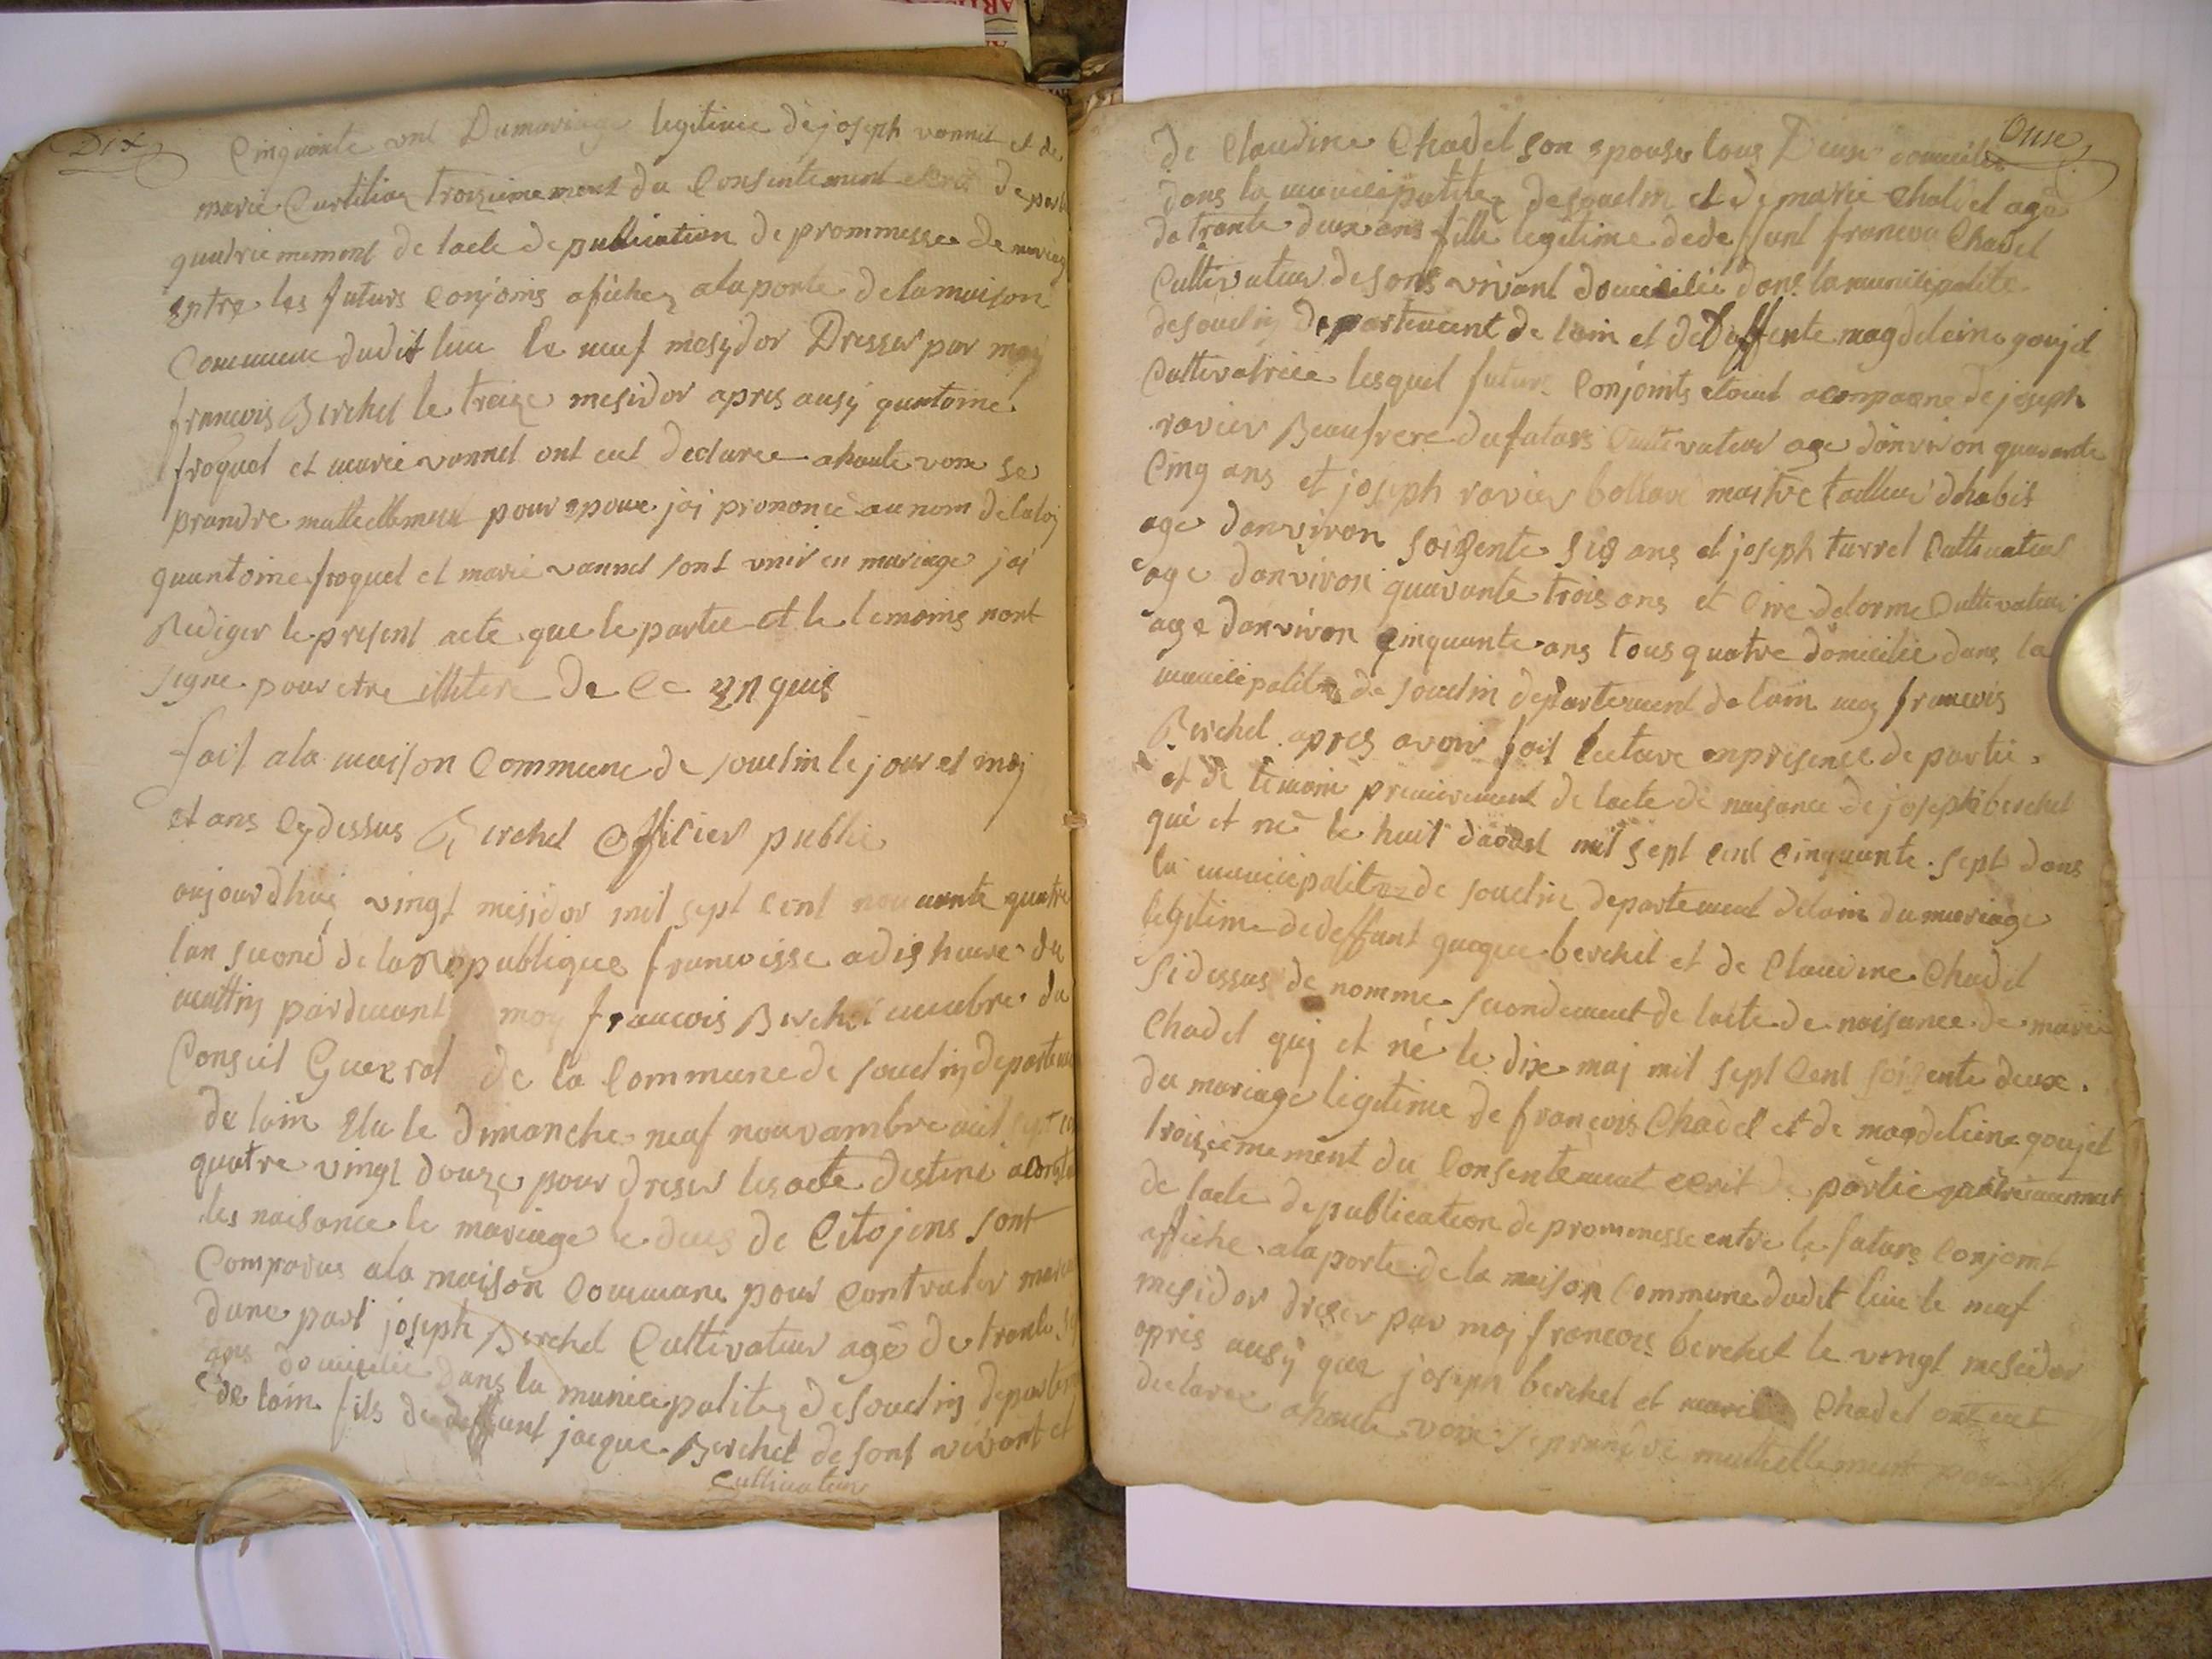 Dix
Cinquante unt Dumariage legitime de joseph vannel et de
marie Curtiliaz troizieme ment du Consintement ecrit de partie
quatrie mement de lacte de publication de prommesse de mariage
Entre les futurs Conjoins afichez ala porte de lamaison
Commune dudit lieu le neuf mesydor Dresser par moy
francois Berchet le treize mesidor apres ausÿ quantoine
froquet et marie vannel ont eut declaree ahaute voix se
prandre mutuellement pour epoux jaj prononcé au nom delaloj
quantoine froquet et marie vannel sont unir en mariage jaj
Rediger le present acte que le partie et le temoins nont
signe pour etre illitere De Ce Enquis
fait ala maison Commune de souclin le jour et moj
et ans Cydessus Berchet Officier public
aujourdhuij vingt mesidor mil sept Cent nonuante quatre
lan second de la Republique francoisse a dis heure du
mattin pardevant moy francois Berchet membre du
Conseil Gueral de la Commune de souclin departement
de loin Elu le dimanche neuf nouvambre mil sept
quatre vingt douze pour dreser les acte destine a
les naisance le mariage le deces de Citojens sont
Comparus ala maison Commune pour Contracter
dune part joseph Berchet Cultivateur agé de trante
ans domicilie dans la municipalitez de souclin
de loin fils de deffunt jacque Berchet de sont vivant et
Cultivateur
Onse
de Claudine Chadel son epouse tous Deux domicilie
dans la municipalitez de souclin et de marie Chaldel agé
de trante deux ans fille legitime dede funt francoi Chadel
Cultivateur de sons vivant domicilié dans la municipalite
de souclin departement de loin et de Deffente magdeleine goujet
Cultivatrice lesquel futurs Conjoints etoient acompagne de joseph
ravier Beaufrere du futurs Cultivateur age danviron quarante
Cinq ans et joseph ravier bollare maitre tailleur dhabit
age danviron soizente sis ans et joseph turrel Cultivateur
age danviron quarante trois ans et Cire delorme Cultivateur
age danviron cinquante ans tous quatre domicilie dans la
municipalitez de souclin departement de loin moy francois
Berchet apres avoir fait lecture enpresence de partie
et de temoin premierement de lacte de naisance de joseph berchet
qui et né le huit daoust mil sept cent cinquante sept dans
la municipalitez de souclin departement deloin du mariage
legitime dedeffunt gacque berchet et de Claudine Chadel
sidessus de nomme secondement de lacte de naisance de marie
Chadel quij et né le dix maj mil sept Cent soizente deux
du mariage legitime de francois Chadel et de magdeleine goujet
troizieme ment du Consentement ecrit de partie quatriemement
de lacte de publication de prommesse entre le future Conjoint
affiche ala porte de la maison Commune dudit lieu le neuf
mesidor dreser par moj francois berchet le vingt mesidor
apris ausÿ que joseph berchet et marie Chadel ont eut
declaree ahaute voix se prandre mutuellement pour